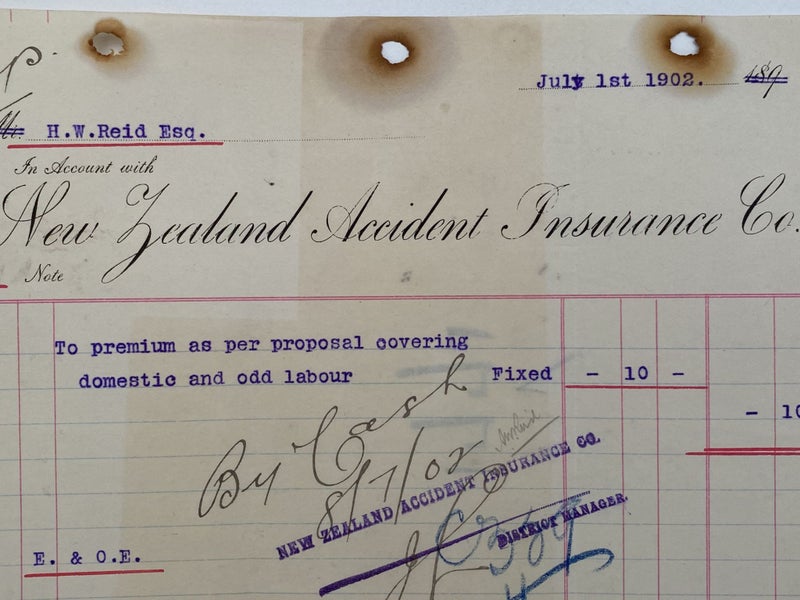 July 1st 1902. 189
H.W.Reid Esq.
In Account with
New Zealand Accident Insurance Co.
Note
To premium as per proposal covering
domestic and odd labour Fixed - 10 -
- 10
By Cash
8/7/02
NEW ZEALAND ACCIDENT INSURANCE CO.
DISTRICT MANAGER.
E. & O.E.